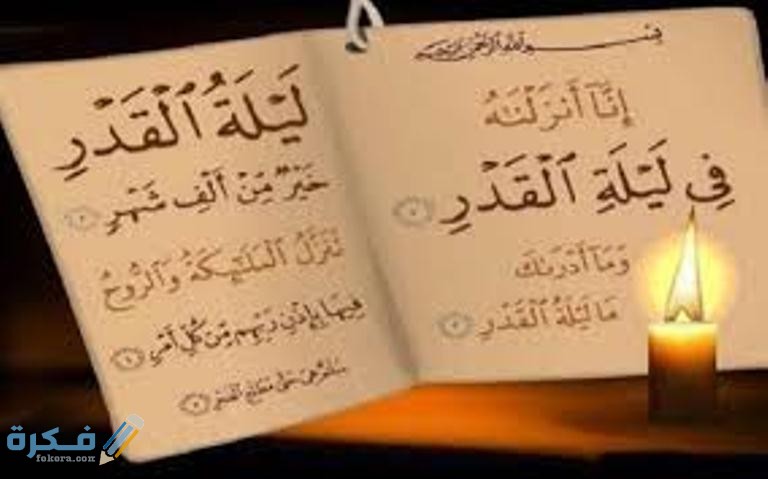 بسم الله الرحمن الرحيم
إِنَّآ أَنزَلْنَٰهُ
فِى لَيْلَةِ ٱلْقَدْرِ ١
وَمَآ أَدْرَىٰكَ
مَا لَيْلَةُ ٱلْقَدْرِ ٢
لَيْلَةُ ٱلْقَدْرِ
خَيْرٌ مِّنْ أَلْفِ شَهْرٍ ٣
تَنَزَّلُ ٱلْمَلَٰٓئِكَةُ وَٱلرُّوحُ
فِيهَا بِإِذْنِ رَبِّهِم مِّن كُلِّ أَمْرٍ ٤
سَلَٰمٌ هِىَ حَتَّىٰ مَطْلَعِ ٱلْفَجْرِ ٥
فكرة
fokora.com